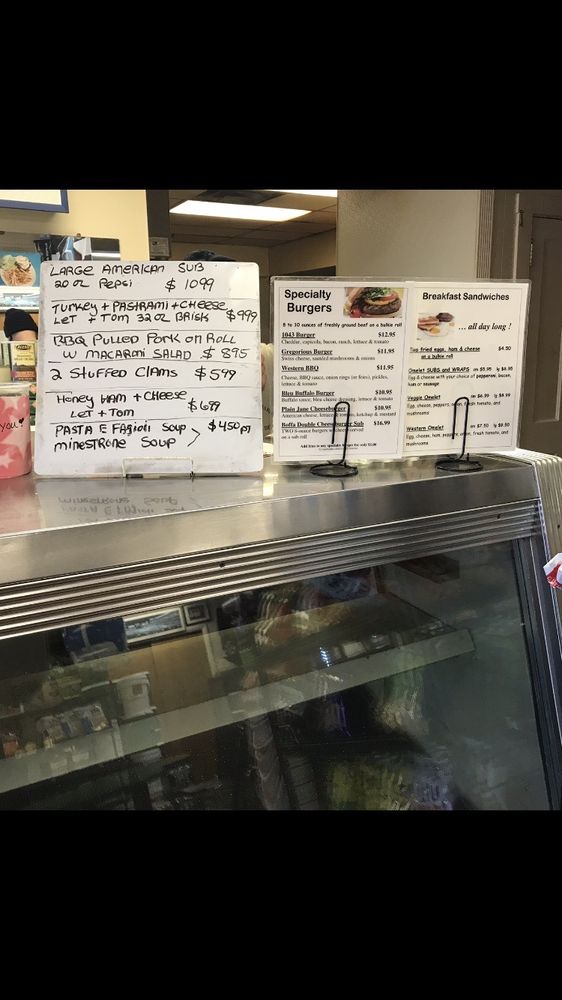 LARGE AMERICAN SUB
20 oz Pepsi $ 1099
Turkey + PASTRAMI + CHEESE
LET + Tom 32 oz BRISK $999
BBQ Pulled Pork on Roll
w MACARONI SALAD $ 895
2 STUFFED CLAMS $ 599
Honey HAM + CHEESE
LET + Tom $ 699
PASTA E FAgioli Soup
minestrone Soup > $450 pt
you!
Specialty
Burgers
8 to 10 ounces of freshly ground beef on a bulkie roll
1043 Burger $12.95
Cheddar, capicola, bacon, ranch, lettuce & tomato
Gregorious Burger $11.95
Swiss cheese, sautéed mushrooms & onions
Western BBQ $11.95
Cheese, BBQ sauce, onion rings (or fries), pickles,
lettuce & tomato
Bleu Buffalo Burger $10.95
Buffalo sauce, bleu cheese dressing, lettuce & tomato
Plain Jane Cheeseburger $10.95
American cheese, lettuce, tomato, ketchup & mustard
Boffa Double Cheeseburger Sub $16.99
TWO 8-ounce burgers w/cheese served
on a sub roll
Breakfast Sandwiches
... all day long !
Two fried eggs, ham & cheese $4.50
on a bulkie roll
Omelet SUBS and WRAPS sm $5.95 lg $8.95
Egg & cheese with your choice of pepperoni, bacon,
ham or sausage
Veggie Omelet sm $6.99 lg $8.99
Egg, cheese, peppers, onion, fresh tomato, and
mushrooms
Western Omelet sm $7.50 lg $9.50
Egg, cheese, ham, pepper, onion, fresh tomato, and
mushrooms